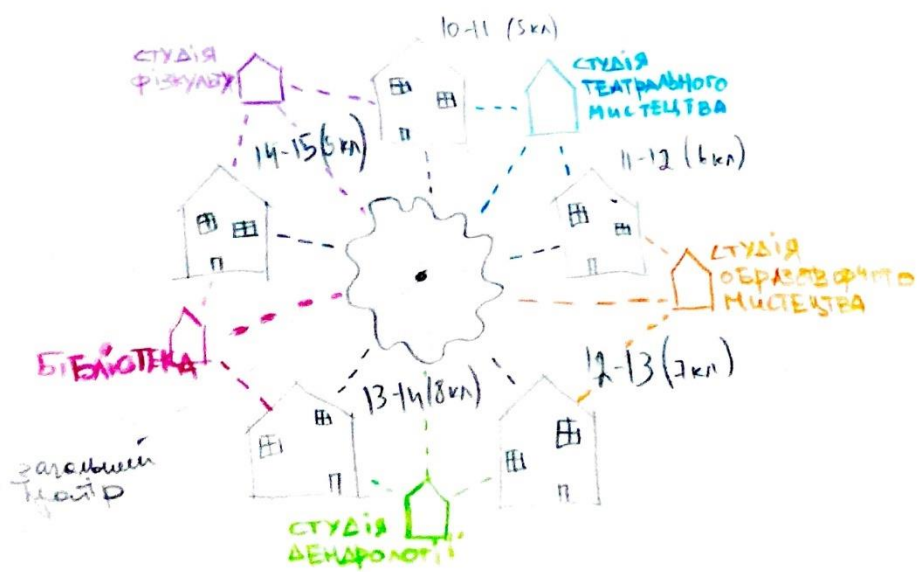 10-11 (5кл)
СТУДІЯ
ФІЗКУЛЬТ
СТУДІЯ
ТЕАТРАЛЬНОГО
МИСТЕЦТВА
14-15(9кл)
11-12 (6кл)
СТУДІЯ
ОБРАЗОТВОРЧОГО
МИСТЕЦТВА
БІБЛІОТЕКА
12-13(7кл)
13-14(8кл)
загальний
СТУДІЯ
ДЕНДРОЛОГІЇ